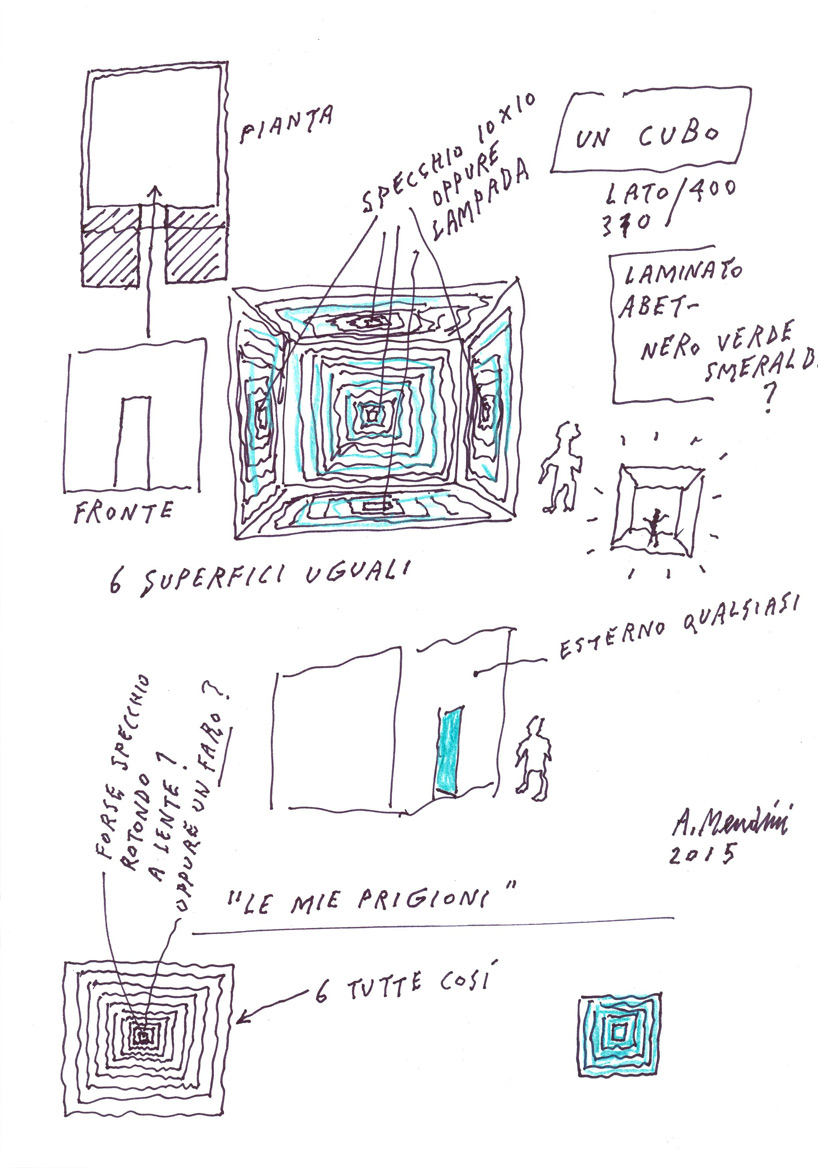 PIANTA
SPECCHIO 10×10
OPPURE
LAMPADA
UN CUBO
LATO/400
370
LAMINATO
ABET-
NERO VERDE
SMERALD.
?
FRONTE
6 SUPERFICI UGUALI
ESTERNO QUALSIASI
FORSE SPECCHIO
ROTONDO
A LENTE?
OPPURE UN FARO?
A. Mendini
2015
"LE MIE PRIGIONI"
6 TUTTE COSÍ